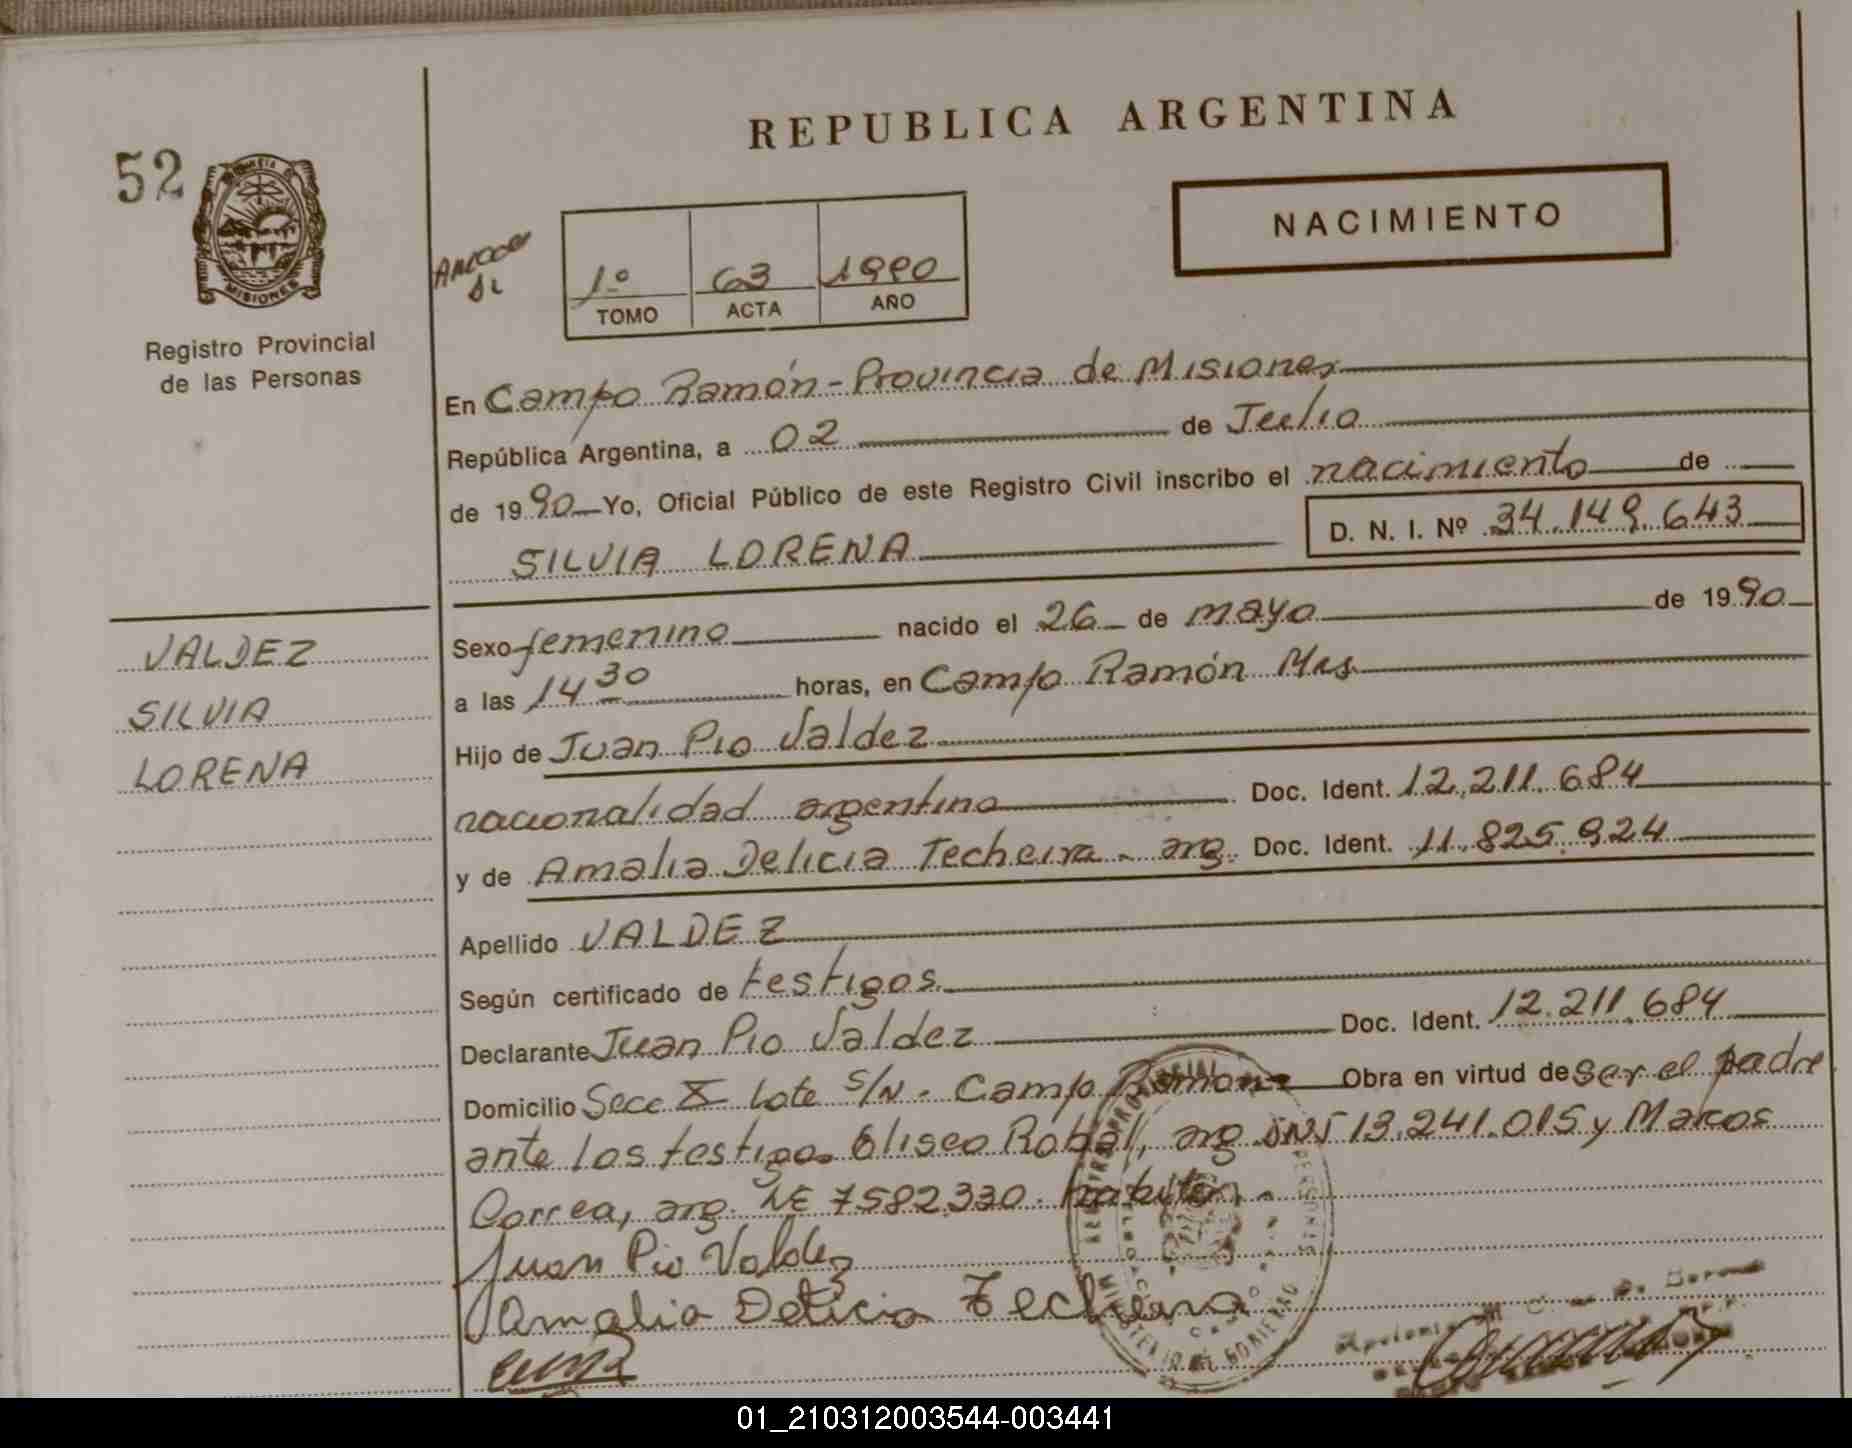 REPUBLICA ARGENTINA
52
NACIMIENTO
MISIONES
Registro Provincial
de las Personas
1º 63 1990
TOMO ACTA AÑO
En Campo Ramón - Provincia de Misiones
República Argentina, a 02 de Julio
de 1990 Yo, Oficial Público de este Registro Civil inscribo el nacimiento de
SILVIA LORENA D. N. I. Nº 34.149.643
VALDEZ
SILVIA
LORENA
Sexo femenino nacido el 26 de mayo de 1990
a las 14 30 horas, en Campo Ramón Mns
Hijo de Juan Pio Valdez
nacionalidad argentino Doc. Ident. 12.211.684
y de Amalia Delicia Techeira - arg. Doc. Ident. 11.825.924
Apellido VALDEZ
Según certificado de testigos
Declarante Juan Pio Valdez Doc. Ident. 12.211.684
Domicilio Secc X Lote S/N - Campo Ramon Obra en virtud de ser el padre
ante los testigos Eliseo arg DNI 13.241.015 y Marcos
Correa, arg. LE 7582.330.
Juan Pio Valdez
Amalia Delicia Techeira
01_210312003544-003441